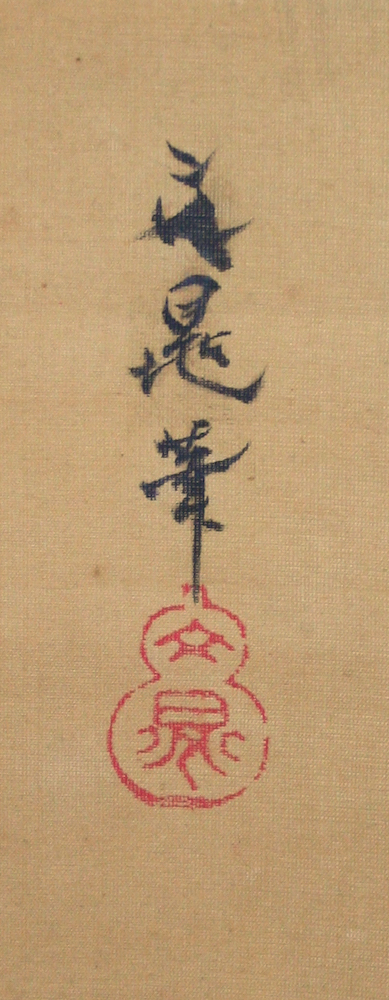 文晁筆
文晁